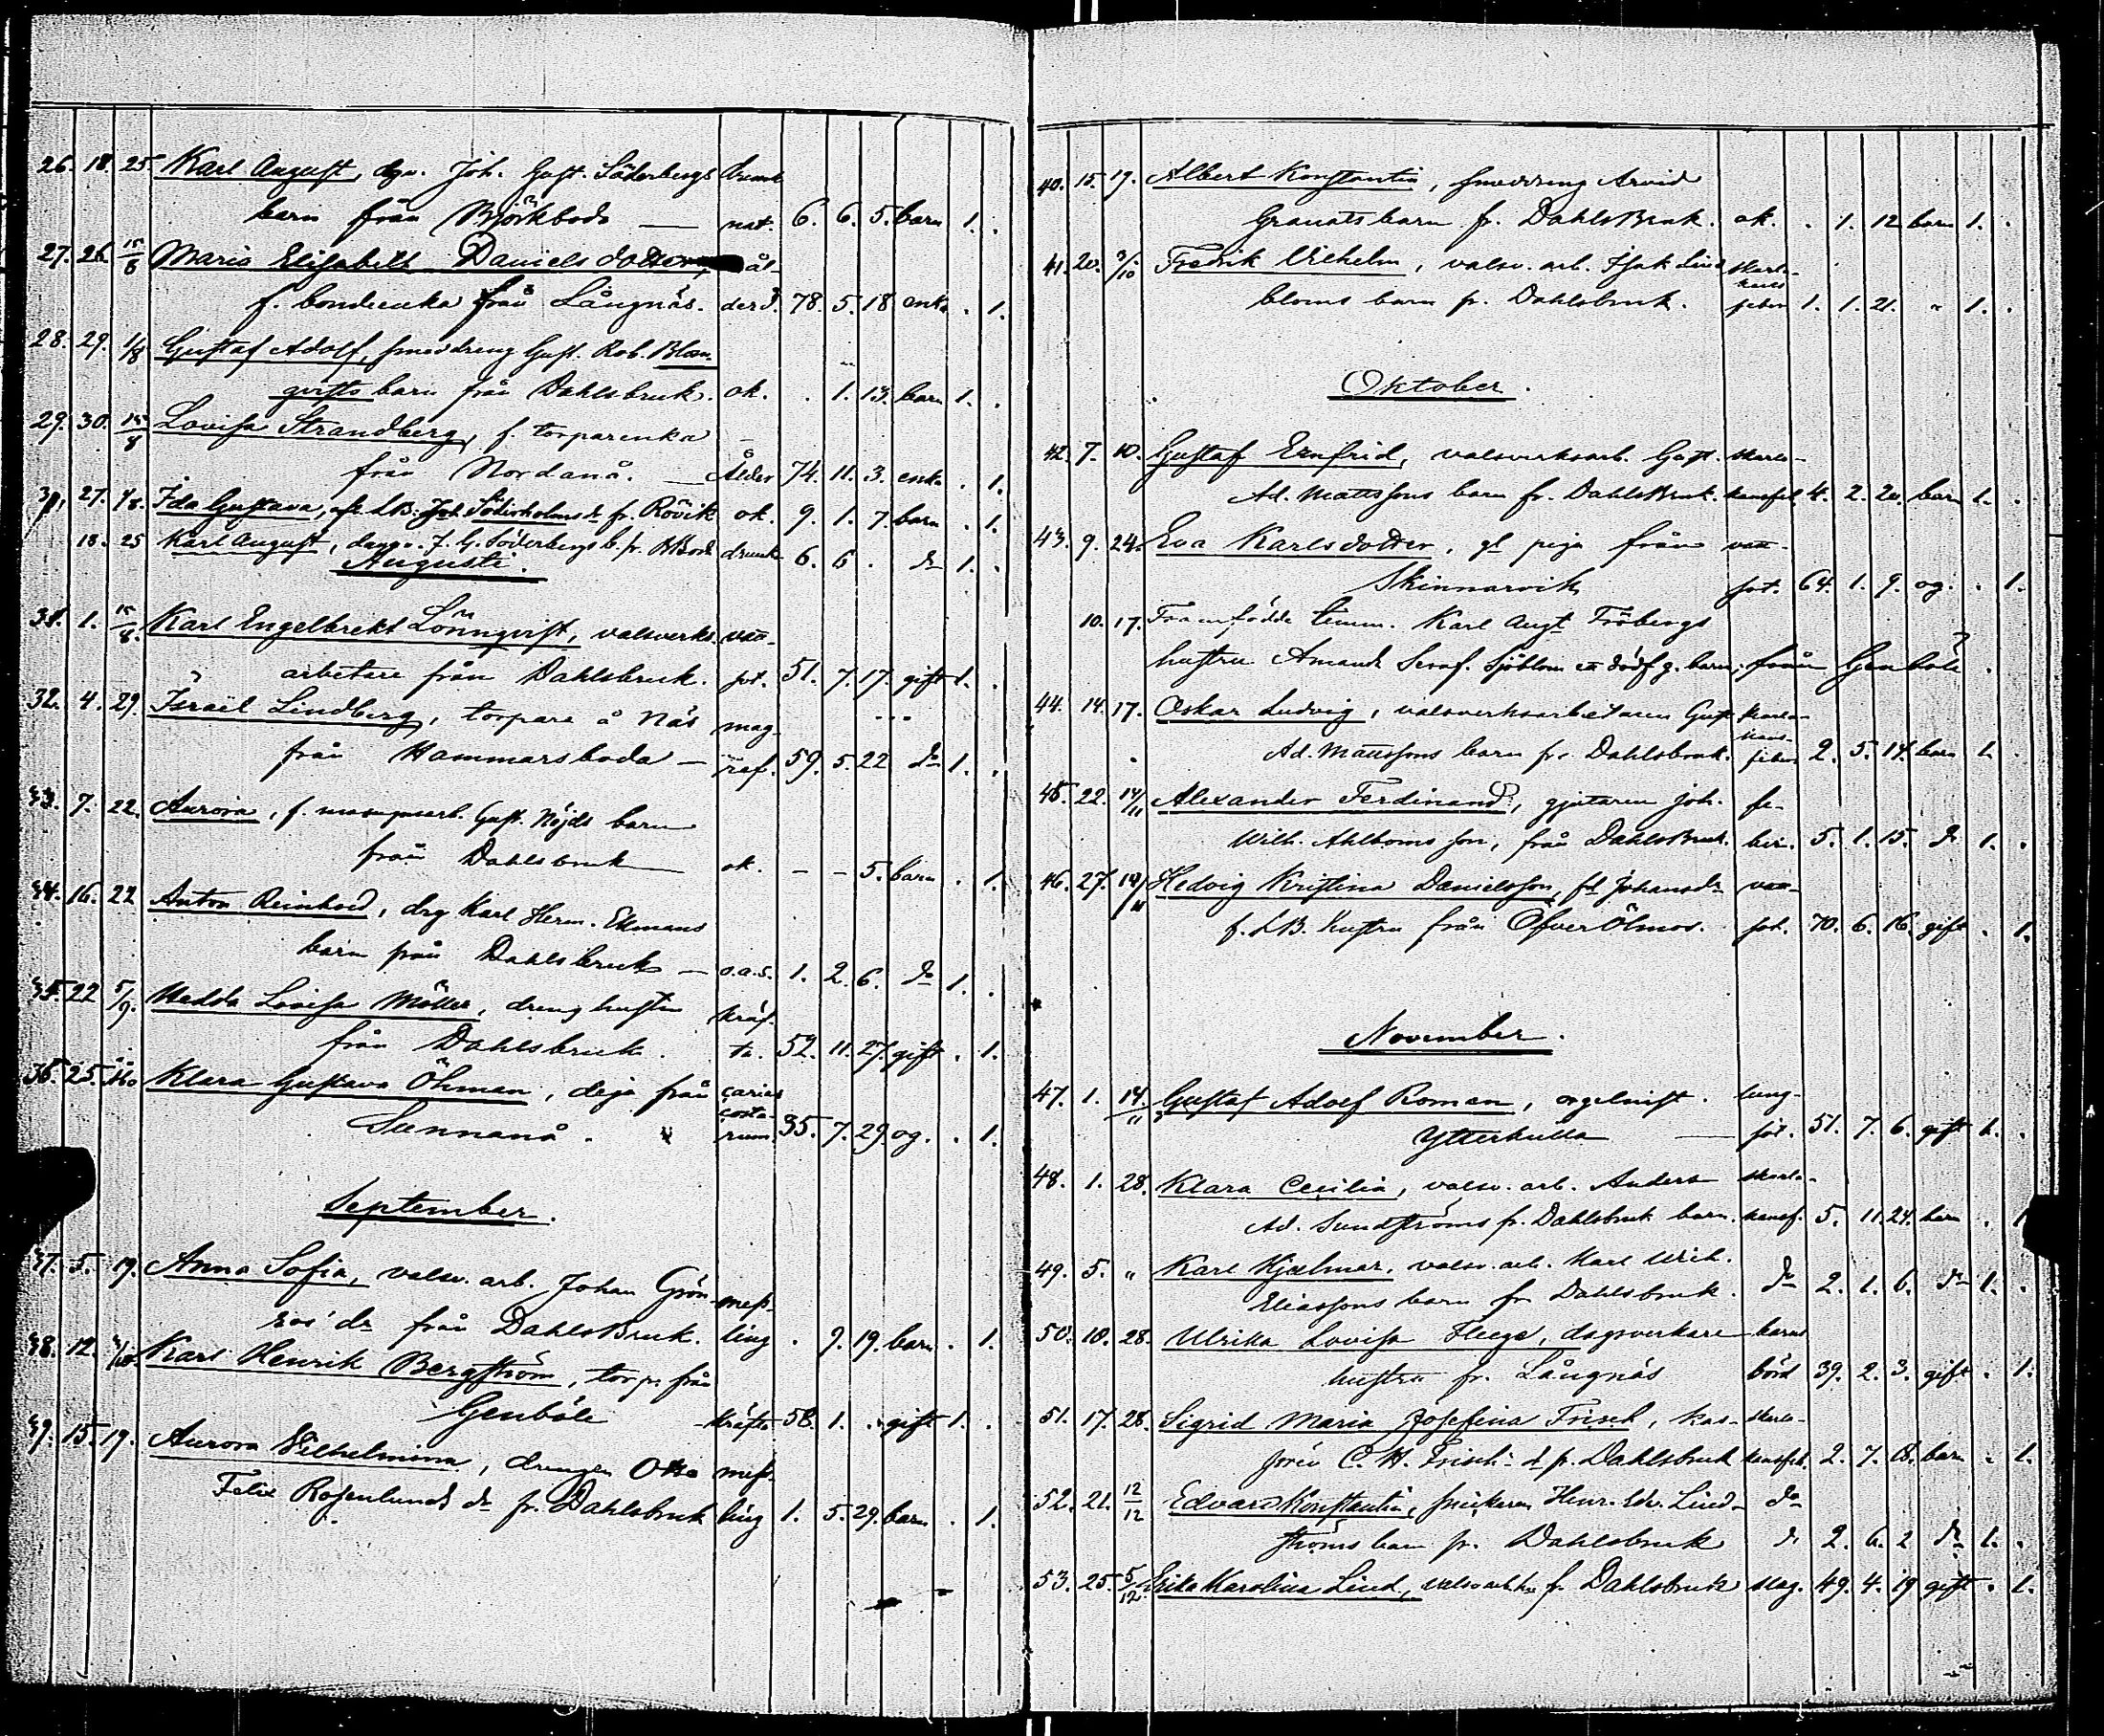 26. 18. 25. Karl August, dgn. Joh. Gust. Söderbergs drunk
barn från Björkboda — nat. 6. 6. 5. barn 1. .
27. 26. 15/8 Maria Elisabeth Danielsdotter, ål-
f. bondeenka från Långnäs. derd. 78. 5. 18 enka . 1.
28. 29. 1/8 Gustaf Adolf, smeddreng Gust. Rob. Blom-
qvists barn från Dahlsbruk. ok. . 1. 13. barn 1. .
29. 30. 15/8 Lovisa Strandberg, f. torparenka
från Nordanå. — Ålder 74. 11. 3. enka . 1.
30. 27. 1/8. Ida Gustava, LB. Joh. Söderholms dr fr. Rövik ok. 9. 1. 7. barn . 1.
18. 25 Karl August, dagv. J. G. Söderbergs b. fr. BBoda drunk 6. 6 . do 1. .
Augusti.
31. 1. 15/8. Karl Engelbrekt Lönnqvist, valsverks- vatt-
arbetare från Dahlsbruk. sot. 51. 7. 17. gift 1. .
32. 4. 29. Israël Lindberg, torpare å Näs mag-
från Hammarsboda — räf. 59. 5. 22 do 1. .
33. 7. 22. Aurora, f. masugnsarb. Gust. Nöjds barn
från Dahlsbruk — ok. – – 5. barn . 1.
34. 16. 22 Anton Reinhold, drg Karl Herm. Ekmans
barn från Dahlsbruk — o.a.s. 1. 2. 6. do 1. .
35. 22 5/9. Hedda Lovisa Möller, dreng hustru kräf-
från Dahlsbruk. ta. 52. 11. 27. gift . 1.
36. 25. Klara Gustava Öhman, deja från caries
costa-
Sunnanå. rum. 35. 7. 29. og. . 1.
September.
37. 5. 19. Anna Sofia, valsv. arb. Johan Grön- mess-
roos' dr från DahlsBruk. ling . 9. 19. barn . 1.
38. 12. Karl Henrik Bergström, torp. från
Genböle kräfta 58. 1. . gift 1. .
39. 15. 19. Aurora Vilhelmina, drengen Otto mess-
Felix Rosenlunds dr fr. Dahlsbruk ling 1. 5. 29. barn . 1.
40. 15. 19. Albert Konstantin, smeddreng Arvid
Granats barn fr. DahlsBruk. ok. . 1. 12 barn 1. .
41. 20. 3/10 Fredrik Vilhelm, valsv. arb. Isak Lind- skarla-
kans
bloms barn fr. Dahlsbruk. feber 1. 1. 21. " 1. .
Oktober.
42. 7. 10. Gustaf Ernfrid, valsverksarb. Gust. skarla-
Ad. Mattssons barn fr. DahlsBruk. kansfeb. 4. 2. 20. barn 1. .
43. 9. 24. Eva Karlsdotter, gl piga från vatt-
Skinnarvik sot. 64. 1. 9. og. . 1.
10. 17. Framfödde timm. Karl Augt Fröbergs
hustru Amanda Seraf. Sjöblom ett dödf. g. barn, från Genböle.
44. 14. 17. Oskar Ludvig, valsverksarbetaren Gust. skarla-
kans-
Ad. Mattssons barn fr. Dahlsbruk. feber 2. 5. 14. barn 1. .
45. 22. 14/11 Alexander Ferdinand, gjutaren Joh. fe-
Wilh. Ahlboms son, från DahlsBruk. ber. 5. 1. 15. do 1. .
46. 27. 14/11 Hedvig Kristina Danielsson, fd Johansdr vatt-
f. LB. hustru från ÖfverÖlmos. sot. 70. 6. 16. gift . 1.
November.
47. 1. 14./11 Gustaf Adolf Roman, orgelnist. lung-
Ytterkulla — sot. 51. 7. 6. gift 1. .
48. 1. 28. Klara Cecilia, valsv. arb. Anders skarla-
Ad. Sundströms fr. Dahlsbruk barn. kansf. 5. 11. 24. barn . 1
49. 5. " Karl Hjalmar, valsv. arb. Karl Ulrik
Eliassons barn fr. Dahlsbruk. do 2. 1. 6. do 1. .
50. 10. 28. Ulrika Lovisa Fleege, dagsverkare barns
hustru fr. Långnäs börd 39. 2. 3. gift . 1.
51. 17. 28. Sigrid Maria Josefina Frisch, kas- skarla-
sören C. H. Frisch's d fr. Dahlsbruk kansfeb. 2. 7. 18. barn . 1.
52. 21. 12/12 Edvard Konstantin, snickaren Henr. Edv. Lind- do
ströms barn fr. Dahlsbruk do 2. 6. 2 do 1. .
53. 25. 5/12. Erika Karolina Lind, valsv arb. hu fr. Dahlsbruk slag. 49. 4. 19 gift . 1.